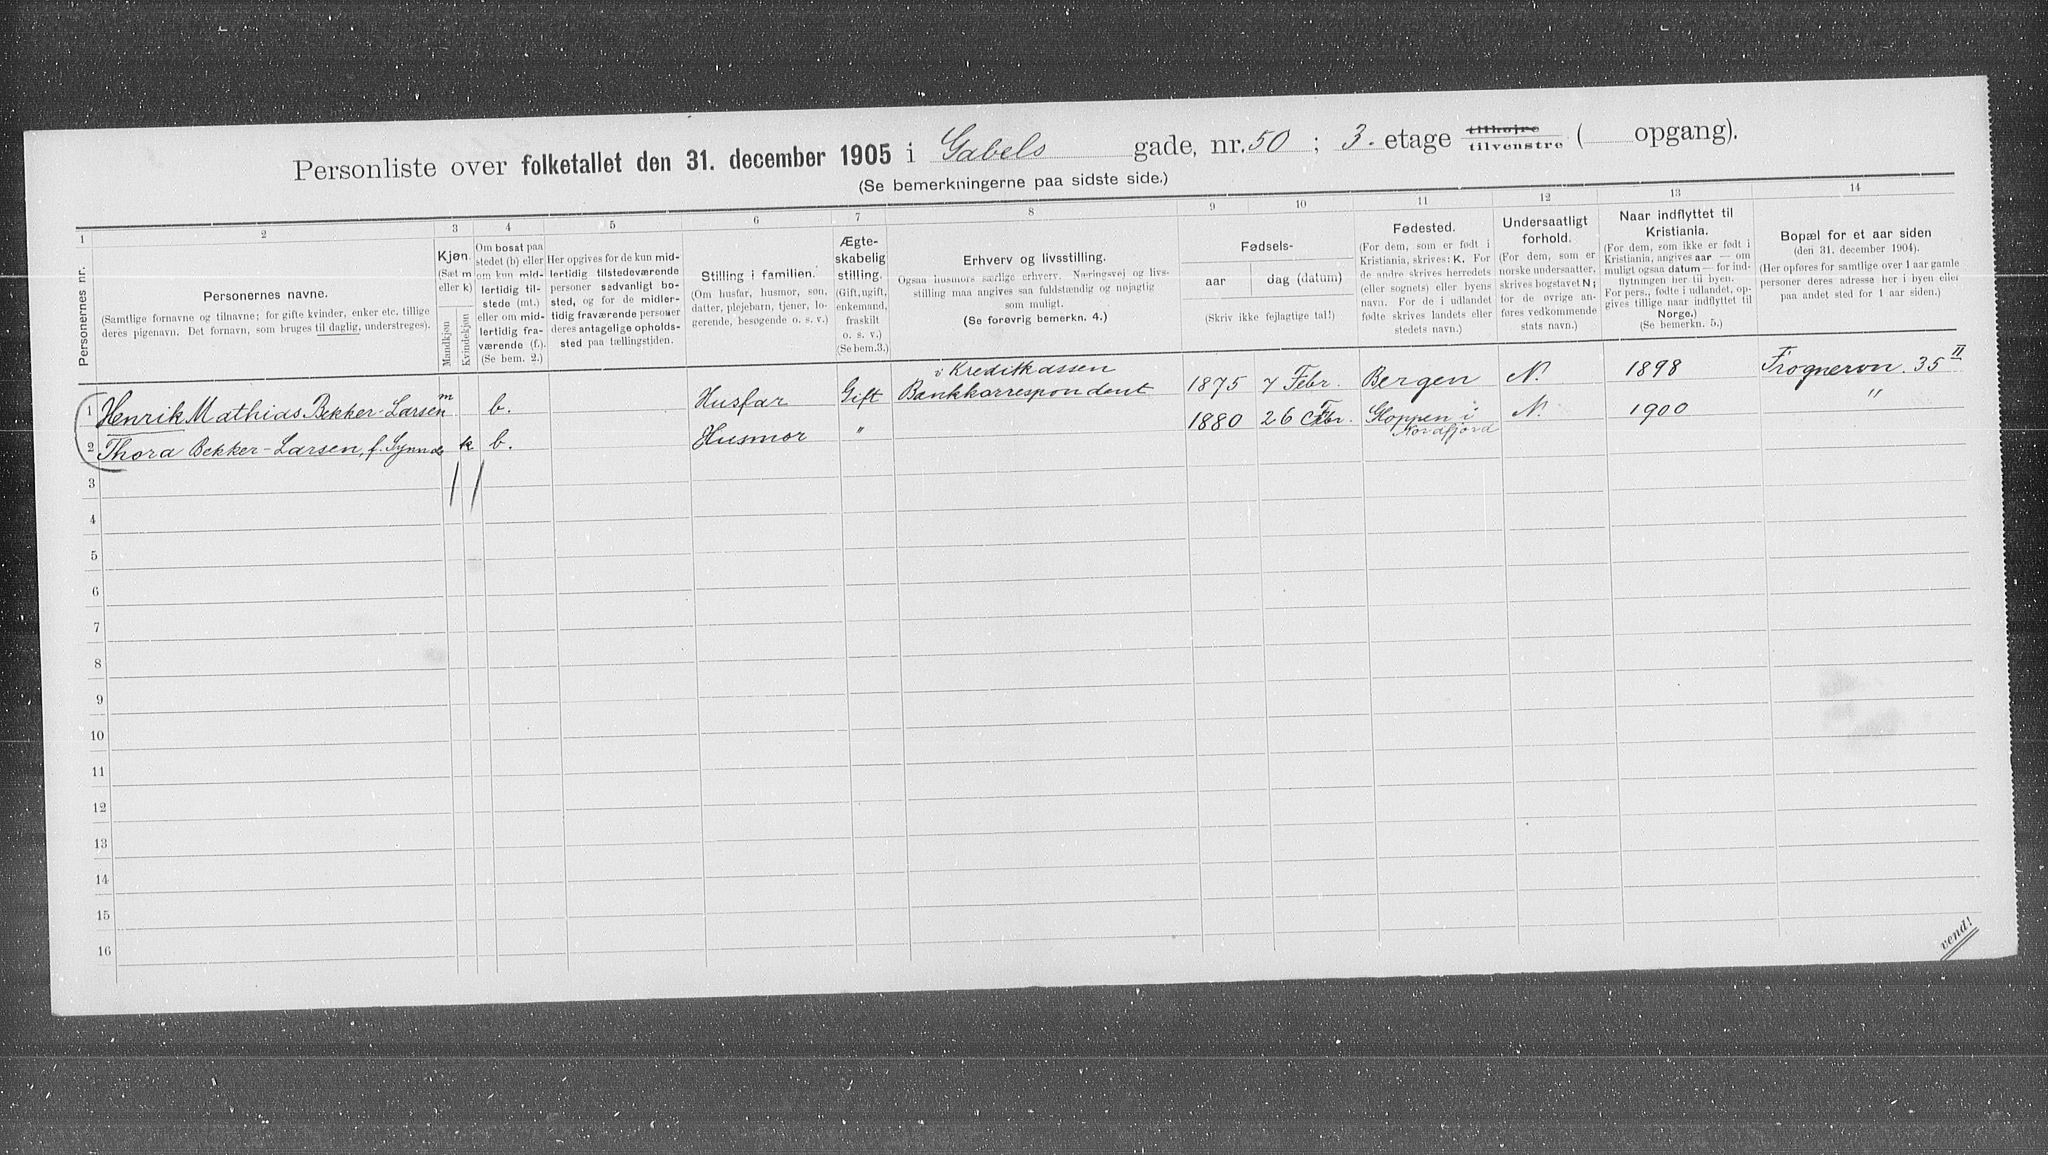 Personliste over folketallet den 31. december 1905 i Gabels gade, nr. 50 ; 3. etage tilhøjre tilvenstre ( opgang).
(Se bemerkningerne paa sidste side.)
1 2 3 4 5 6 7 8 9 10 11 12 13 14
Personernes nr.
Personernes navne.
(Samtlige fornavne og tilnavne; for gifte kvinder, enker etc. tillige
deres pigenavn. Det fornavn, som bruges til daglig, understreges).
Kjøn.
(Sæt m
eller k)
Mandkjøn
Kvindekjøn
Om bosat paa
stedet (b) eller
om kun mid-
lertidig til-
stede (mt.)
eller om mid-
lertidig fra-
værende (f.).
(Se bem. 2.)
Her opgives for de kun mid-
lertidig tilstedeværende
personer sædvanligt bo-
sted, og for de midler-
tidig fraværende personer
deres antagelige opholds-
sted paa tællingstiden.
Stilling i familien.
(Om husfar, husmor, søn,
datter, plejebarn, tjener, lo-
gerende, besøgende o. s. v.)
Ægte-
skabelig
stilling.
(Gift, ugift,
enkemand,
fraskilt
o. s. v.)
(Se bem.3.)
Erhverv og livsstilling.
Ogsaa husmors særlige erhverv. Næringsvej og livs-
stilling maa angives saa fuldstændig og nøjagtig
som muligt.
(Se forøvrig bemerkn. 4.)
Fødsels-
aar
dag (datum)
(Skriv ikke fejlagtige tal!)
Fødested.
(For dem, som er født i
Kristiania, skrives: K. For
de andre skrives herredets
(eller sognets) eller byens
navn. For de i udlandet
fødte skrives landets eller
stedets navn.)
Undersaatligt
forhold.
(For dem, som er
norske undersaatter,
skrives bogstavet N;
for de øvrige an-
føres vedkommende
stats navn.)
Naar indflyttet til
Kristiania.
(For dem, som ikke er født i
Kristiania, angives aar — om
muligt ogsaa datum — for ind-
flytningen her til byen.
For pers., fødte i udlandet, op-
gives tillige naar indflyttet til
Norge.)
(Se bemerkn. 5.)
Bopæl for et aar siden
(den 31. december 1904).
(Her opføres for samtlige over 1 aar gamle
personer deres adresse her i byen eller
paa andet sted for 1 aar siden.)
i Kreditkassen
1 Henrik Mathias Bekker-Larsen m b. Husfar Gift Bankkorrespondent 1875 7 Febr. Bergen N. 1898 Frognervn 35 II
2 Thora Bekker-Larsen, f. k b. Husmor " 1880 26 Febr. Gloppen i Nordfjord N. 1900 "
3
4
5
6
7
8
9
10
11
12
13
14
15
16
vend!